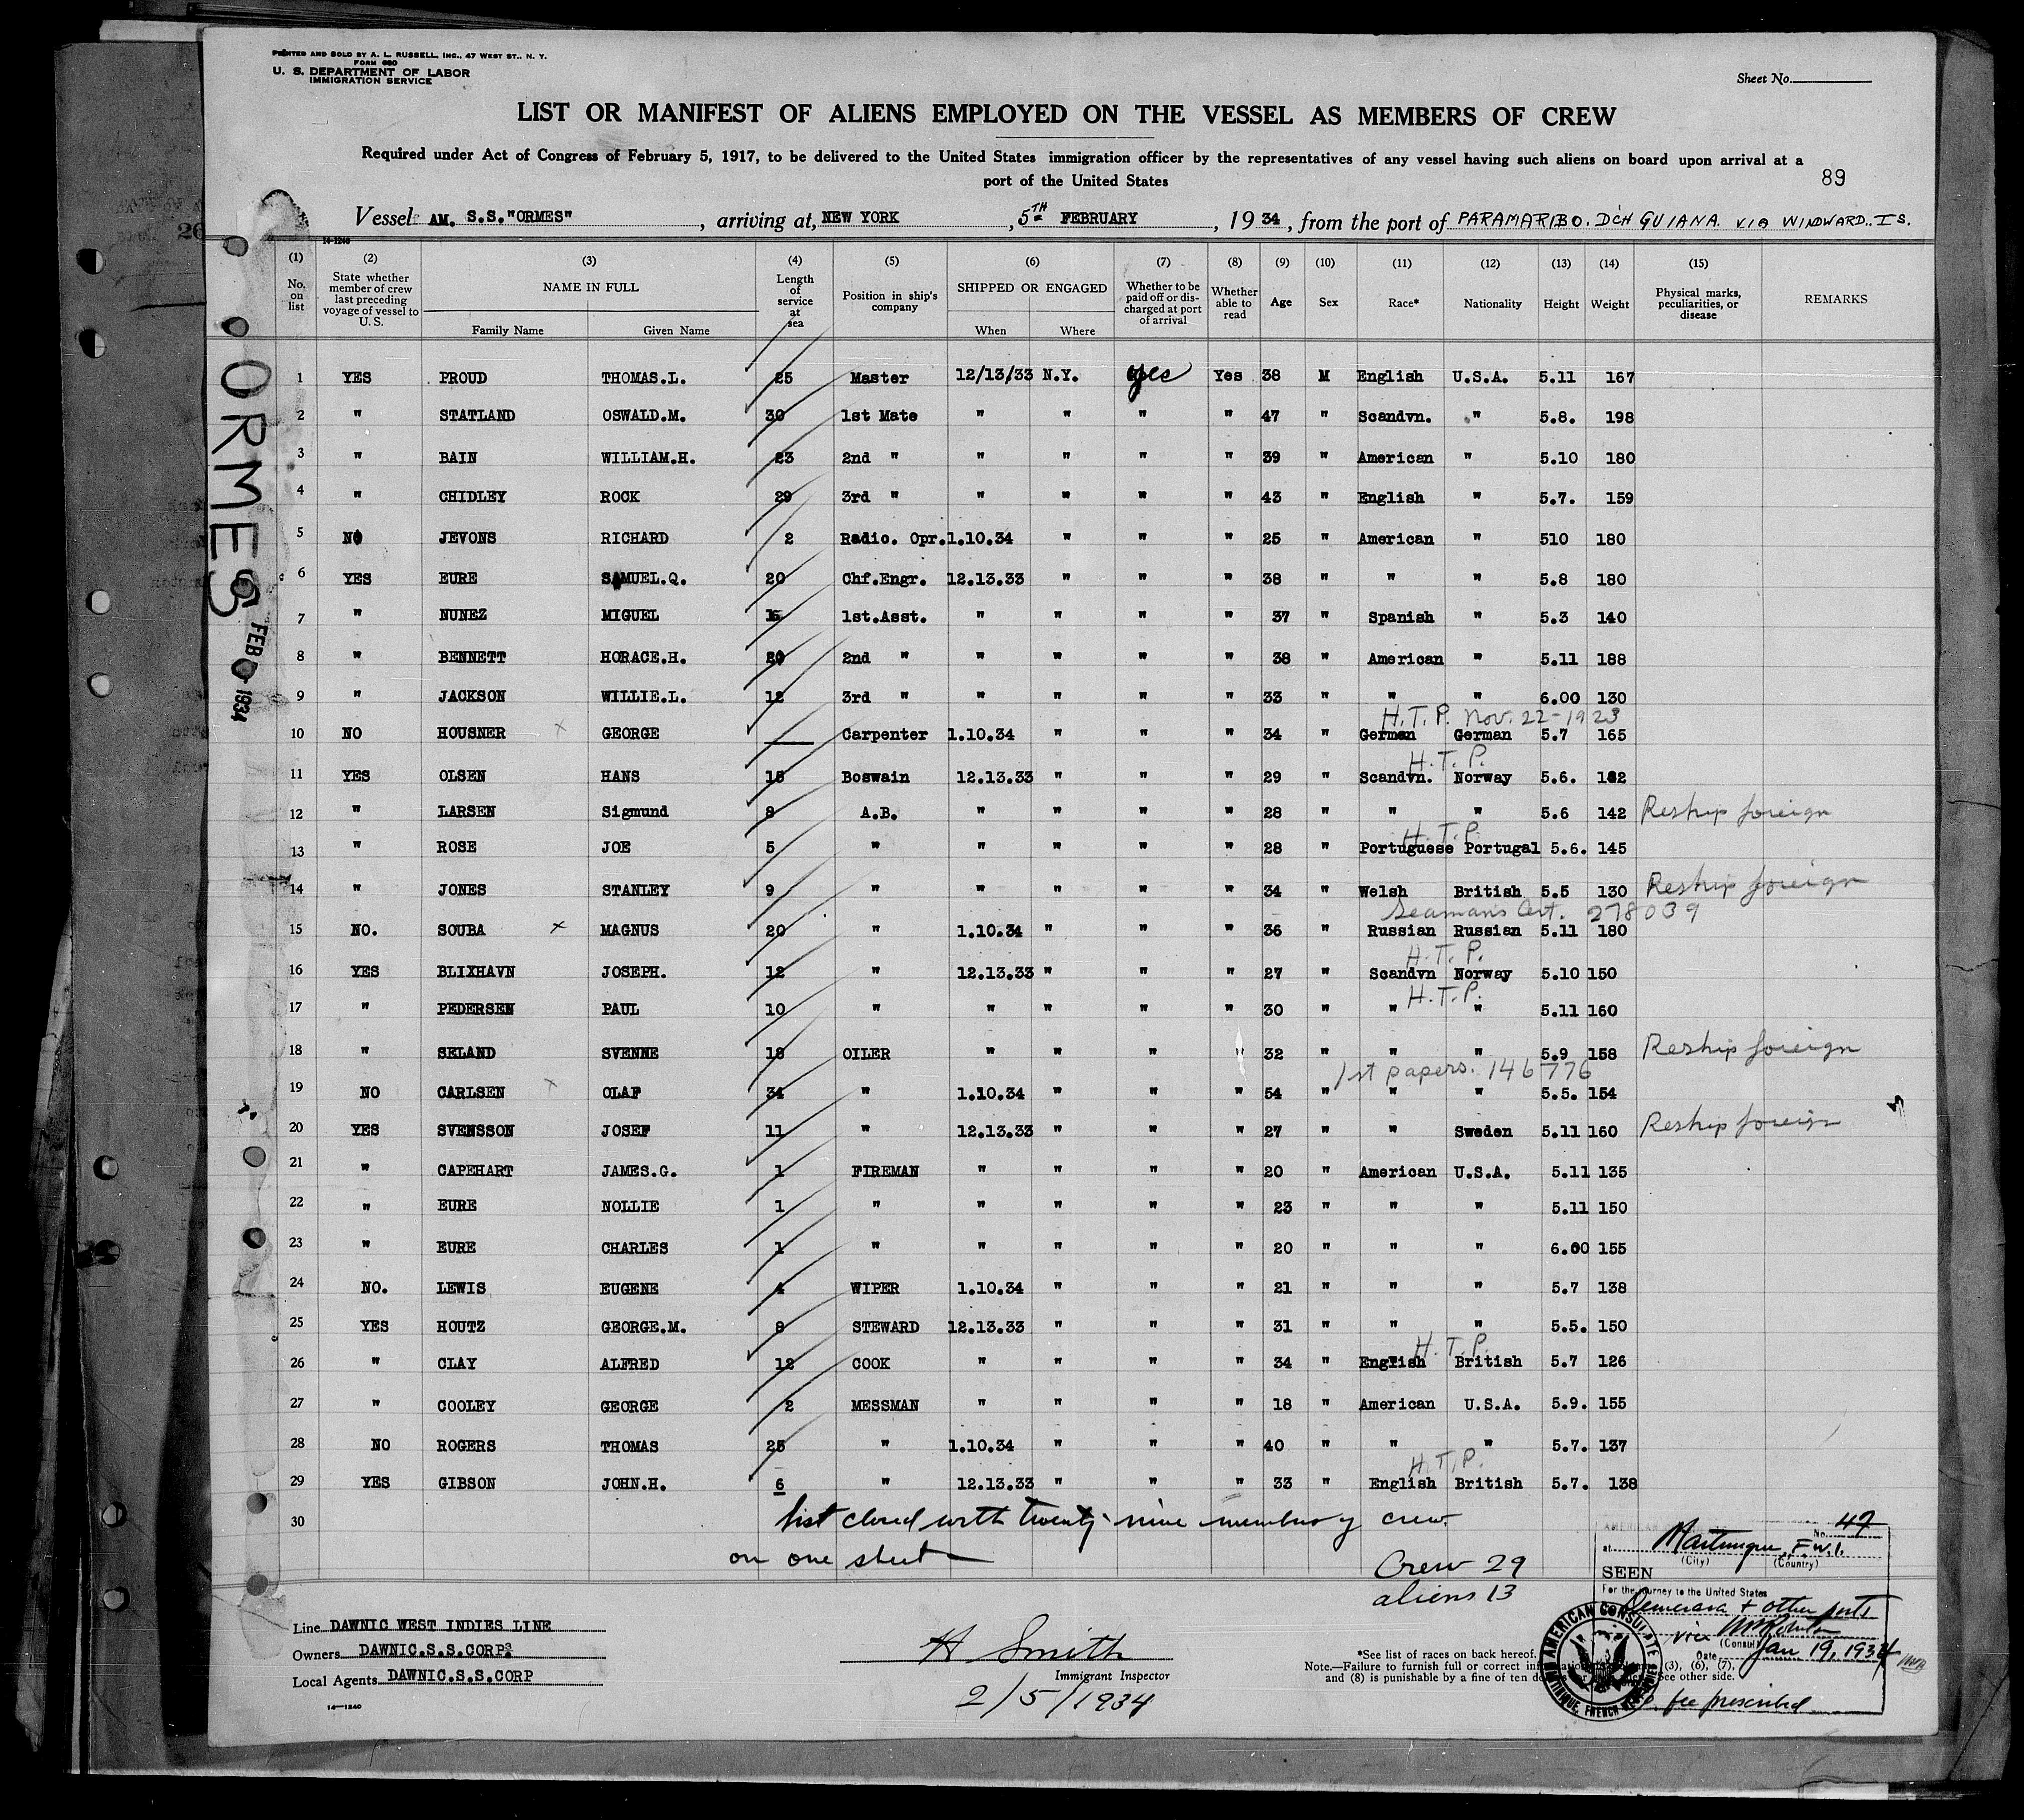 PRINTED AND SOLD BY A. L. RUSSELL, INC., 47 WEST ST., N. Y.
FORM 680
U. S. DEPARTMENT OF LABOR
IMMIGRATION SERVICE
Sheet No.
LIST OR MANIFEST OF ALIENS EMPLOYED ON THE VESSEL AS MEMBERS OF CREW
Required under Act of Congress of February 5, 1917, to be delivered to the United States immigration officer by the representatives of any vessel having such aliens on board upon arrival at a
port of the United States
89
Vessel AM. S.S."ORMES", arriving at, NEW YORK, 5TH FEBRUARY, 1934, from the port of PARAMARIBO. D'CH GUIANA. VIA WINDWARD.. IS.
14-1240
(1) (2) (3) (4) (5) (6) (7) (8) (9) (10) (11) (12) (13) (14) (15)
No. on list | State whether member of crew last preceding voyage of vessel to U. S. | NAME IN FULL Family Name Given Name | Length of service at sea | Position in ship's company | SHIPPED OR ENGAGED When Where | Whether to be paid off or discharged at port of arrival | Whether able to read | Age | Sex | Race* | Nationality | Height | Weight | Physical marks, peculiarities, or disease | REMARKS
1 YES PROUD THOMAS.L. 25 Master 12/13/33 N.Y. yes Yes 38 M English U.S.A. 5.11 167
2 " STATLAND OSWALD.M. 30 1st Mate " " " " 47 " Scandvn. " 5.8. 198
3 " BAIN WILLIAM.H. 23 2nd " " " " " 39 " American " 5.10 180
4 " CHIDLEY ROCK 29 3rd " " " " " 43 " English " 5.7. 159
5 NO JEVONS RICHARD 2 Radio. Opr. 1.10.34 " " " 25 " American " 510 180
6 YES EURE SAMUEL.Q. 20 Chf.Engr. 12.13.33 " " " 38 " " " 5.8 180
7 " NUNEZ MIGUEL 1st.Asst. " " " " 37 " Spanish " 5.3 140
8 " BENNETT HORACE.H. 20 2nd " " " " " 38 " American " 5.11 188
9 " JACKSON WILLIE.L. 12 3rd " " " " " 33 " " " 6.00 130
H.T.P. Nov. 22-1923
10 NO HOUSNER x GEORGE Carpenter 1.10.34 " " " 34 " German German 5.7 165
H.T.P.
11 YES OLSEN HANS 15 Boswain 12.13.33 " " " 29 " Scandvn. Norway 5.6. 182
12 " LARSEN Sigmund 8 A.B. " " " " 28 " " " 5.6 142 Reship foreign
H.T.P.
13 " ROSE JOE 5 " " " " " 28 " Portuguese Portugal 5.6. 145
14 " JONES STANLEY 9 " " " " " 34 " Welsh British 5.5 130 Reship foreign
Seamans Cert. 278039
15 NO. SOUBA x MAGNUS 20 " 1.10.34 " " " 36 " Russian Russian 5.11 180
H.T.P.
16 YES BLIXHAVN JOSEPH. 12 " 12.13.33 " " " 27 " Scandvn Norway 5.10 150
H.T.P.
17 " PEDERSEN PAUL 10 " " " " " 30 " " " 5.11 160
18 " SELAND SVENNE 18 OILER " " " 32 " " " 5.9 158 Reship foreign
1st papers. 146776
19 NO CARLSEN x OLAF 34 " 1.10.34 " " " 54 " " " 5.5. 154
20 YES SVENSSON JOSEF 11 " 12.13.33 " " " 27 " " Sweden 5.11 160 Reship foreign
21 " CAPEHART JAMES.G. 1 FIREMAN " " " " 20 " American U.S.A. 5.11 135
22 " EURE NOLLIE 1 " " " " " 23 " " " 5.11 150
23 " EURE CHARLES 1 " " " " " 20 " " " 6.00 155
24 NO. LEWIS EUGENE 4 WIPER 1.10.34 " " " 21 " " " 5.7 138
25 YES HOUTZ GEORGE.M. 8 STEWARD 12.13.33 " " " 31 " " " 5.5. 150
H.T.P.
26 " CLAY ALFRED 12 COOK " " " " 34 " English British 5.7 126
27 " COOLEY GEORGE 2 MESSMAN " " " " 18 " American U.S.A. 5.9. 155
28 NO ROGERS THOMAS 25 " 1.10.34 " " " 40 " " " 5.7. 137
H.T.P.
29 YES GIBSON JOHN.H. 6 " 12.13.33 " " " 33 " English British 5.7. 138
30 list closed with twenty-nine members of crew
on one sheet
Crew 29
aliens 13
No. 42
at Martinique, F.W.I.
(City) (Country)
SEEN
For the journey to the United States
Demerara + other ports
vice
(Consul)
Date Jan 19, 1934
fee prescribed
AMERICAN CONSULATE
MARTINIQUE, FRENCH WEST INDIES
Line DAWNIC WEST INDIES LINE
Owners DAWNIC.S.S.CORP
Local Agents DAWNIC.S.S.CORP
14-1240
H Smith
Immigrant Inspector
2/5/1934
*See list of races on back hereof.
Note.—Failure to furnish full or correct (3), (6), (7),
and (8) is punishable by a fine of ten See other side.
ORMES
FEB 1934
26